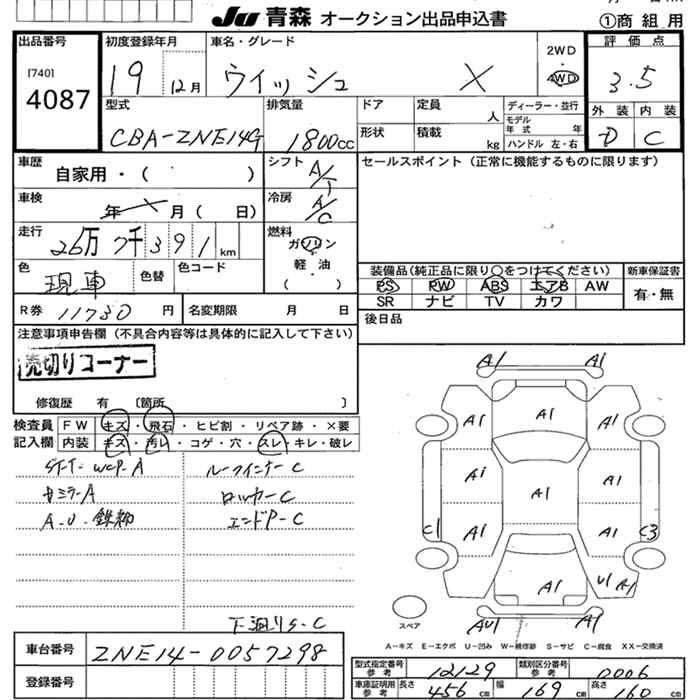 JU 青森 オークション出品申込書
①商組用
出品番号
[740]
4087
初度登録年月
19 12月
車名・グレード
ウィッシュ X
2WD
4WD
評価点
3.5
外装 内装
D C
型式
CBA-ZNE14G
排気量
1800cc
ドア
形状
定員 人
積載 kg
ディーラー・並行
モデル年式 年
ハンドル 左・右
車歴
自家用・( )
シフト
A/T
セールスポイント (正常に機能するものに限ります)
車検
年 月 ( 日)
冷房
A/C
走行
26万 7千 3 9 1 km
燃料
ガソリン
・
軽油
( )
色
現車
色替
色コード
装備品(純正品に限り○をつけてください)
新車保証書
PS PW ABS エアB AW
SR ナビ TV カワ
有・無
R券 11730 円
名変期限 月 日
後日品
注意事項申告欄 (不具合内容等は具体的に記入して下さい)
売切りコーナー
修復歴 有 〔箇所 〕
検査員記入欄
FW キズ・飛石・ヒビ割・リペア跡・×要
内装 キズ・汚レ・コゲ・穴・スレ・キレ・破レ
ルーフインナーC
サミラーA
ロッカーC
エンドP-C
下廻りS-C
A1 A1
A1 A1 A1
A1 A1 A1
C1 A1 A1 C3
A1 U1 A1
AU1 A1
スペア
A-キズ E-エクボ U-凹み W-補修跡 S-サビ C-腐食 XX-交換済
車台番号
ZNE14-0057298
登録番号
型式指定番号 参考 12129
類別区分番号 参考 0006
車庫証明用 参考 長さ 456 cm 幅 169 cm 高さ 160 cm